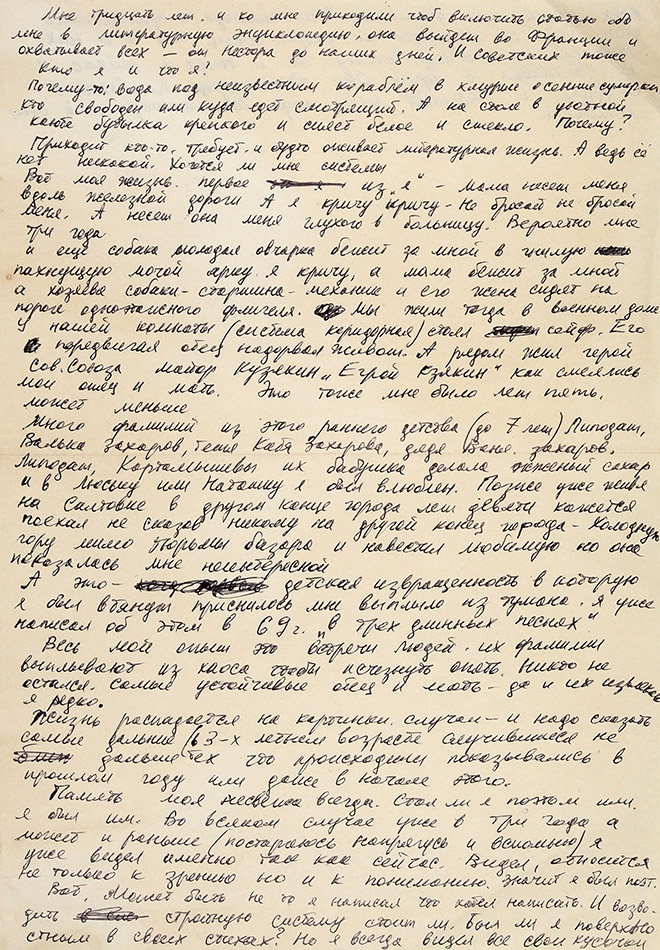 Мне тридцать лет. и ко мне приходили чтоб включить статью обо
мне в литературную энциклопедию. она выйдет во Франции и
охватывает всех — от Нестора до наших дней. И советских тоже
Кто я и что я?
Почему-то: вода под неизвестным кораблём в хмурые осенние сумерки
кто свободен или куда едет смотрящий. А на столе в уютной
каюте бутылка крепкого и сияет белое и стекло. Почему?
Приходит кто-то. Требует. и будто оживает литературная жизнь. А ведь её
нет никакой. Хочется ли мне системы
Вот моя жизнь. первое из "я" — мама несет меня
вдоль железной дороги А я кричу кричу — Не бросай не бросай
Меня. А несет она меня глухого в больницу. Вероятно мне
три года
и еще собака молодая овчарка бежит за мной в гнилую
пахнущую мочой арку. я кричу, а мама бежит за мной
а хозяева собаки — старшина — механик и его жена сидят на
пороге одноэтажного флигеля. Мы жили тогда в военном доме
У нашей комнаты (система коридорная) стоял сейф. Его
передвигая отец надорвал живот. А рядом жил герой
Сов. Союза майор Кузякин „Егрой Кзякин" как смеялись
мои отец и мать. Это тоже мне было лет пять,
может меньше
Много фамилий из этого раннего детства (до 7 лет) Липодат,
Валька Захаров, тетя Катя Захарова, дядя Ваня. Захаров,
Липодат, Картамышевы их бабушка делала жженый сахар
и в Люську или Наташку я был влюблен. Позже уже живя
на Салтовке в другом конце города лет девяти кажется
поехал не сказав никому на другой конец города — Холодную
гору мимо тюрьмы базара и навестил любимую но она
показалась мне неинтересной
А это — детская извращенность в которую
я был втянут приснилось мне выплыло из тумана. я уже
написал об этом в 69 г. „в трех длинных песнях"
Весь мой опыт это встречи людей. их фамилии
выплывают из хаоса чтобы исчезнуть опять. Никто не
остался. самые устойчивые отец и мать — да и их
я редко.
Жизнь распадается на картинки. случаи — и надо сказать
самые дальние в 3-х летнем возрасте случившиеся не
дальше тех что происходили показывались в
прошлом году или даже в начале этого.
Память моя свежа всегда. Стал ли я поэтом или
я был им. Во всяком случае уже в три года а
может и раньше (постараюсь напрягусь и вспомню) я
уже видел именно так как сейчас. Видел, относится
не только к зрению но и к пониманию. Значит я был поэт.
Вот. Может быть не то я написал что хотел написать. И возво-
дить стройную систему стоит ли. Был ли я поверхно
стным в своих стихах? Но я всегда видел все свои кусочки